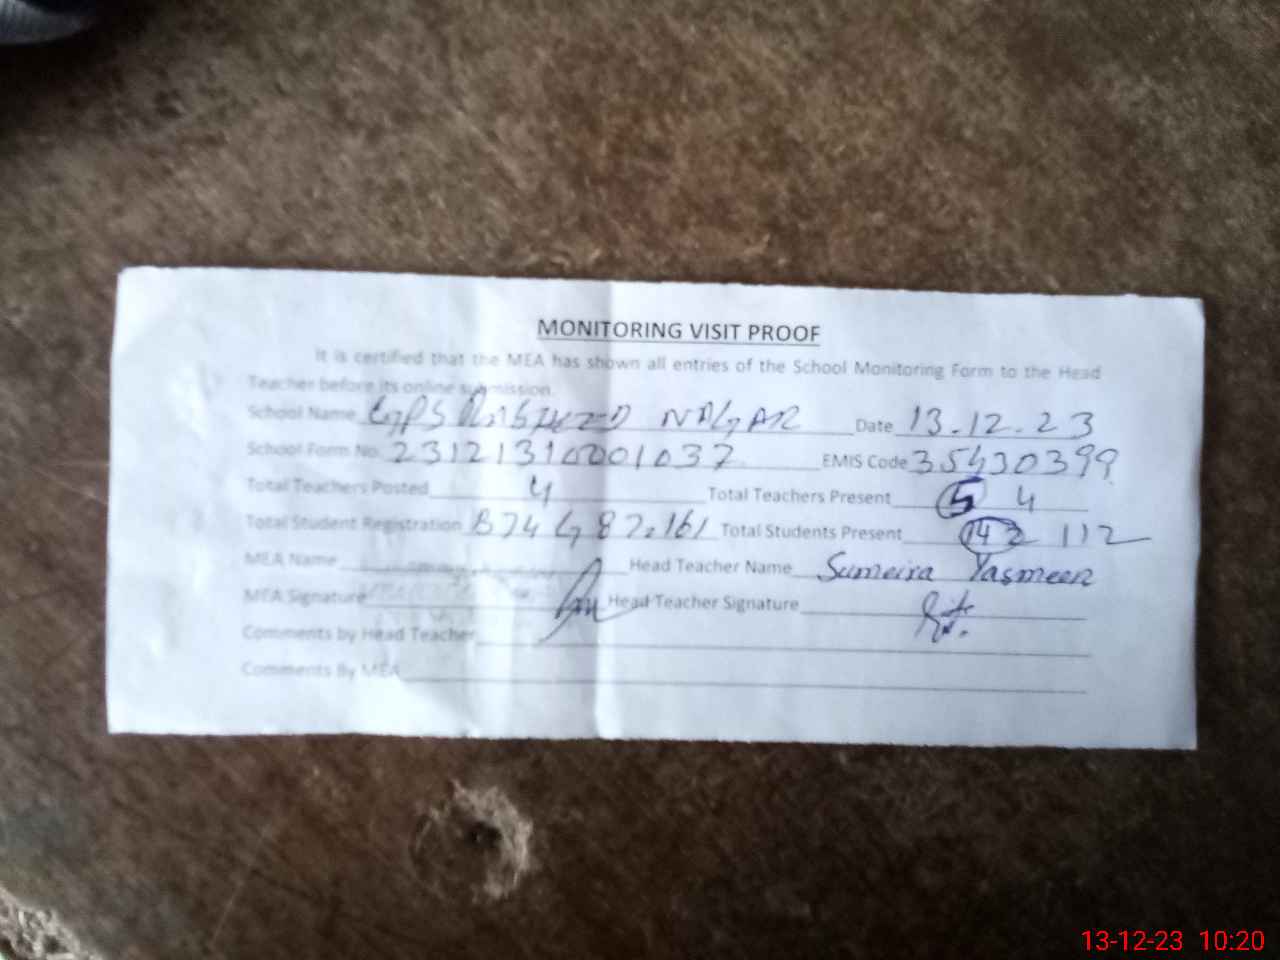 MONITORING VISIT PROOF
It is certified that the MEA has shown all entries of the School Monitoring Form to the Head
Teacher before its online submission.
School Name GPS NAGAR Date 13.12.23
School Form No. 231213100001037 EMIS Code 35430399
Total Teachers Posted 4 Total Teachers Present 5 4
Total Student Registration B74 G87=161 Total Students Present 142 112
MEA Name Head Teacher Name Sumeira Yasmeen
MEA Signature Head Teacher Signature
Comments by Head Teacher
Comments By MEA
13-12-23 10:20